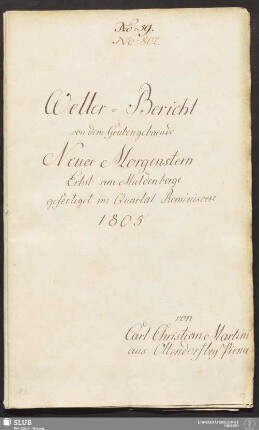 No: 39.
No: 502
Wetter = Bericht
von dem Grubengebaeude
Neuer Morgenstern
Erbst am Muldenberge
gefertiget im Quartal Reminiscere
1805
von
Carl Christian Martini
aus Ottendorf bey Pirna
SLUB